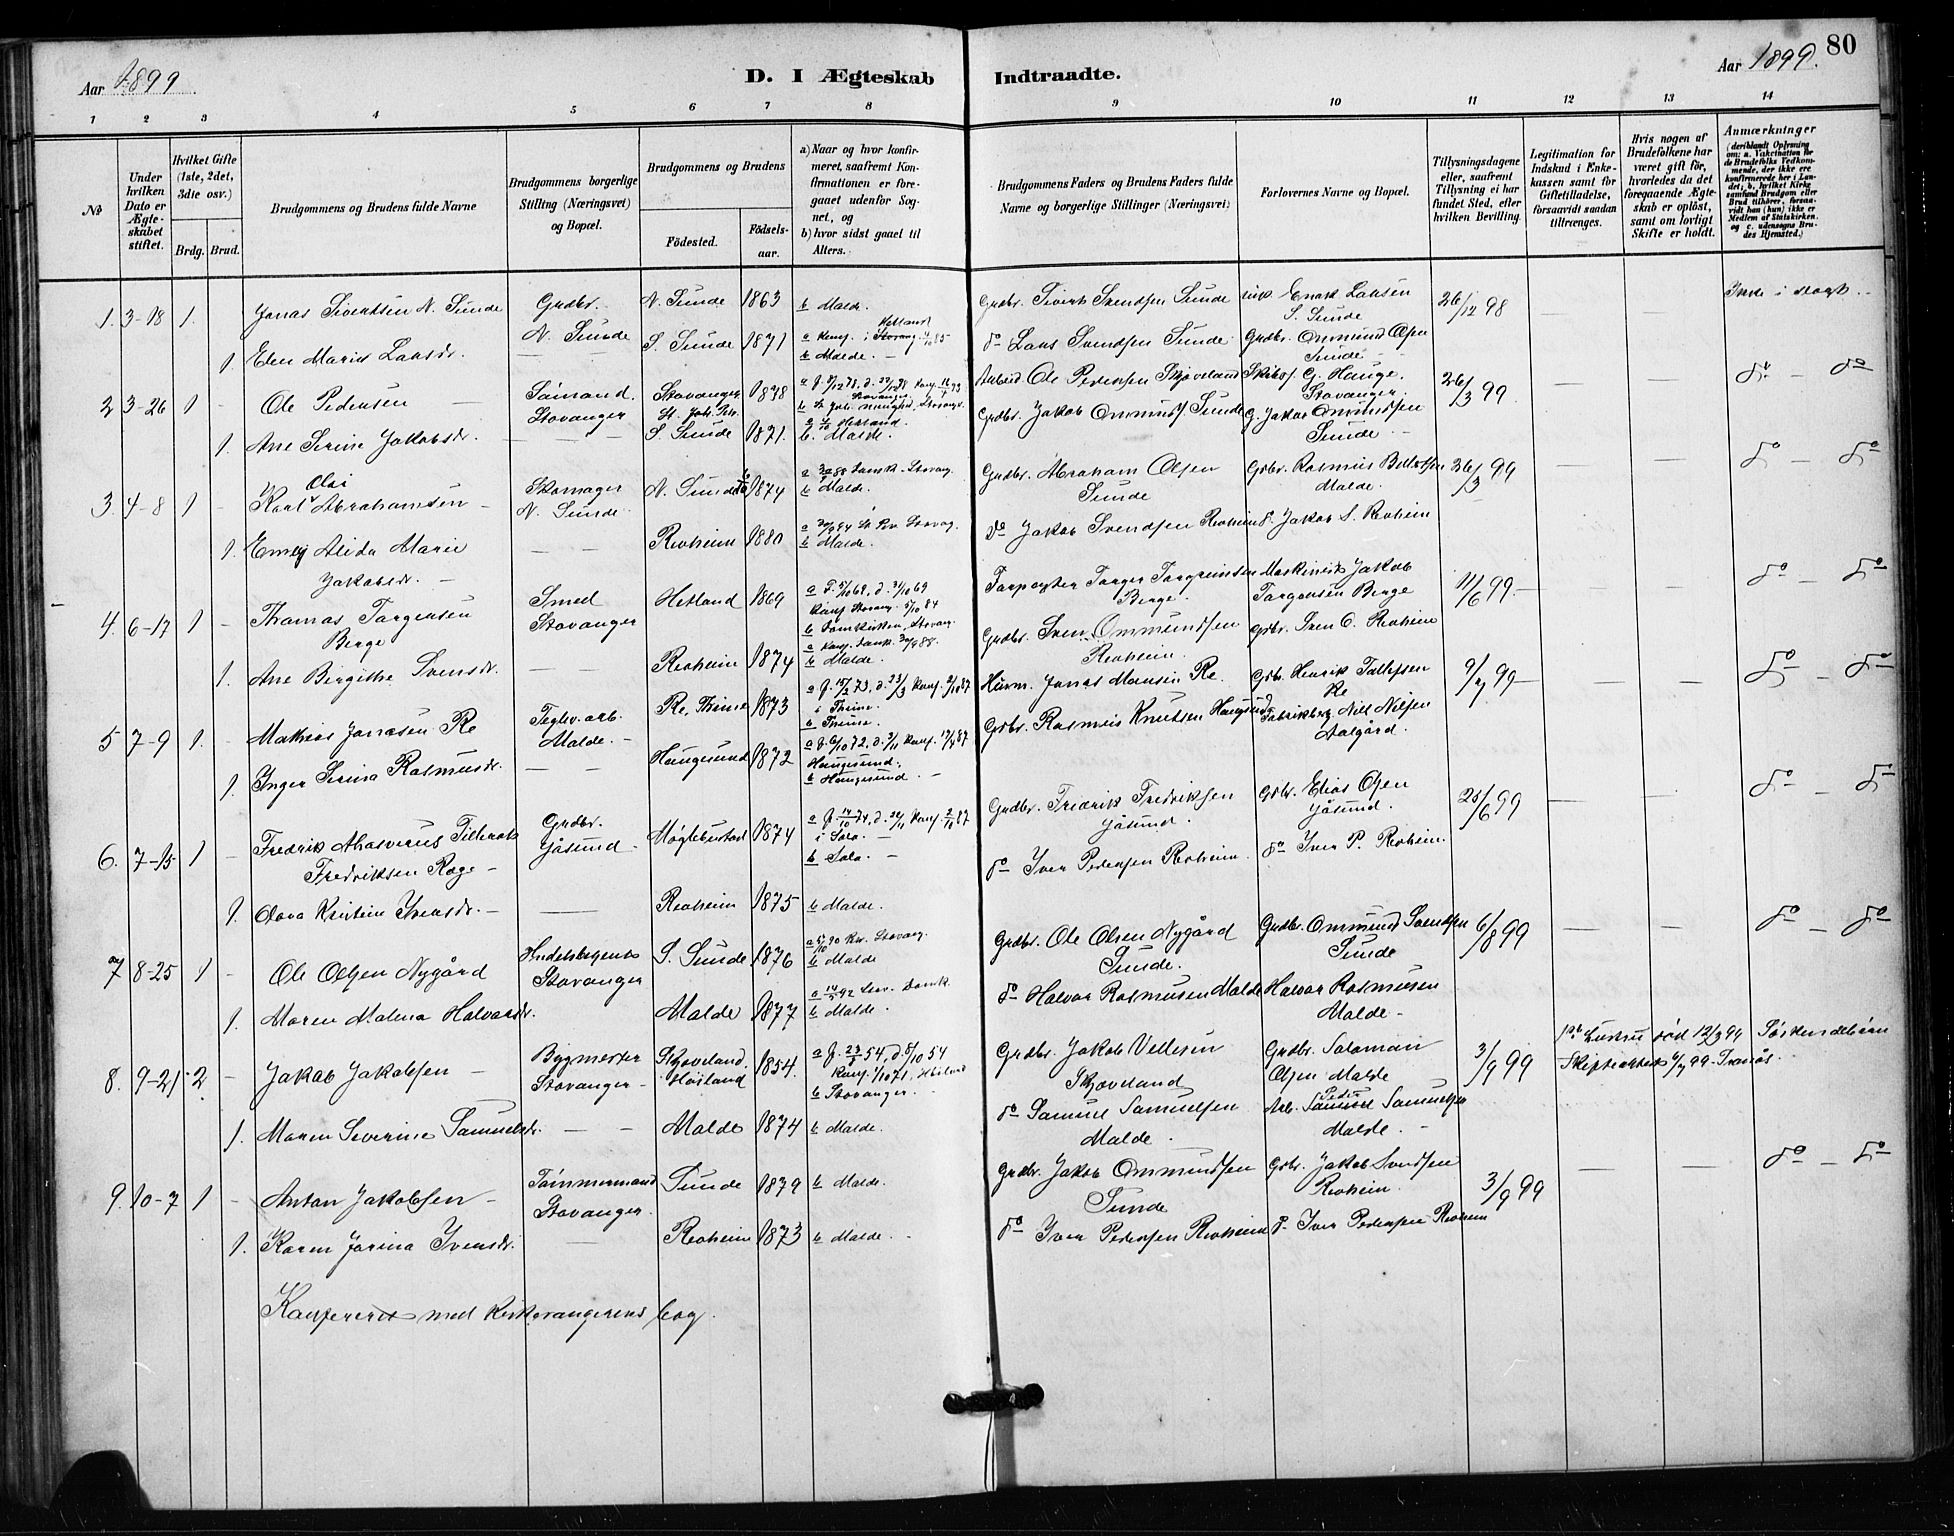 Aar 1899.
D. I Ægteskab Indtraadte.
Aar 1899.
80
1 2 3 4 5 6 7 8 9 10 11 12 13 14
No
Under hvilken Dato er Ægteskabet stiftet.
Hvilket Gifte (1ste, 2det, 3die osv.)
Brdg. Brud.
Brudgommens og Brudens fulde Navne
Brudgommens borgerlige Stilling (Næringsvei) og Bopæl.
Brudgommens og Brudens
Födested.
Födselsaar.
a) Naar og hvor konfirmeret, saafremt Konfirmationen er foregaaet udenfor Sognet, og
b) hvor sidst gaaet til Alters.
Brudgommens Faders og Brudens Faders fulde Navne og borgerlige Stillinger (Næringsvei)
Forlovernes Navne og Bopæl.
Tillysningsdagene eller, saafremt Tillysning ei har fundet Sted, efter hvilken Bevilling.
Legitimation for Indskud i Enkekassen samt for Giftetilladelse, forsaavidt saadan tiltrænges.
Hvis nogen af Brudefolkene har været gift för, hvorledes da det foregaaende Ægteskab er oplöst, samt om lovligt Skifte er holdt.
Anmærkninger
(deriblandt Oplysning om: a. Vakcination for de Brudefolks Vedkommende, der ikke ere konfirmerede her i Landet; b. hvilket Kirkesamfund Brudgom eller Brud tilhörer, forsaavidt han (hun) ikke er Medlem af Statskirken, og c. udensogns Brudes Hjemsted.)
1. 3-18 1. Jonas Sivertsen N. Sunde Grdbr. N. Sunde N. Sunde 1863 b Malde. Grdbr. Sivert Svendsen Sunde Enok Larsen S. Sunde 26/12 98 — — Ikke i slægt.
1 Elen Marie Larsdr. — — S. Sunde 1871 a Konf. i Hetland 85 b Malde. do Lars Svendsen Sunde Grdbr. Ommund Olsen Sunde
2 3-26 1 Ole Pedersen Sømand. Stavanger Stavanger St. Joh. 1878 Arbeid. Ole Pedersen Skjæveland Skibsf. G. Hauge. Stavanger. 26/3 99 — — do — do
1. Ane Serine Jakobsdr. — — S. Sunde 1871. Hetland. b. Malde. Grdbr. Jakob Ommunds. Sunde G. Jakob Ommundsen Sunde
3. 4-8 1 Karl Olai Abrahamsen Skomager N. Sunde N. Sunde 1874 88 Domk. Stavang. b Malde. Grdbr. Abraham Olsen Sunde Grbr. Rasmus Malde. 26/3 99 — — do — do
1. Emely Alida Marie Jakobsdr. — — Revheim 1880 94 St. Petr. Stavang. b Malde. do Jakob Svendsen Revheim Jakob S. Revheim
4. 6-17 1 Thomas Torgersen Berge Smed Stavanger Hetland 1869 a F. 5/10 69, d. 31/10 69 Konf. Stavang. 5/10 84 b Domkirken, Stavang. Forpagter Torger Torgrimsen Berge Maskinist Jakob Torgersen Berge 11/6 99. — — do — do
1. Ane Birgithe Svensdr. — — Revheim 1874 a Konf. Domk. 30/9 88. b Malde. Grdbr. Sven Ommundsen Revheim. Grbr. Sven O. Revheim
5 7-9 1. Mathias Jonasen Re Teglv. arb. Malde. Re, Thime 1873 a f. 15/2 73, d. 23/3 Konf. 2/10 87 i Thime. b Thime. Husm. Jonas Monsen Re. Grbr. Henrik Tollefsen Re 9/7 99 — — do — do
1. Inger Serina Rasmusdr. — — Haugesund 1872 a f. 6/10 72, d. 3/11 Konf. 87 Haugesund. b Haugesund. Grbr. Rasmus Knutsen Haugesund Fabrikbg. Niels Nilsen Aalgård.
6. 7-15 1 Fredrik Ahasverus Tillerak Fredriksen Røge Grdbr. Jåsund. Møglebustad 1874 a f. 14/10 74, d. 22/11 Konf. 2/10 87 i Sola. b Sola. Grdbr. Fredrik Fredriksen Jåsund. Grbr. Elias Olsen Jåsund. 25/6 99 — — do — do
1. Olava Kristine Iversdr. — Revheim 1875 b Malde. do Iver Pedersen Revheim do Iver P. Revheim.
7 8-25 1 Ole Olsen Nygård Handelsbetjent Stavanger S. Sunde 1876 90 Stavang. b Malde Grdbr. Ole Olsen Nygård Sunde. Grdbr. Ommund Svendsen Sunde 6/8 99 — — do — do
1. Maren Malena Halvorsdr. Malde 1877 92 Stav. Domk. b Malde. do Halvor Rasmussen Malde Halvor Rasmussen Malde
8. 9-21 2 Jakob Jakobsen Bygmester Stavanger Skjæveland. Høiland 1854. a f. 23/8 54, d. 8/10 54 Konf. 1/10 71, Høiland b Stavanger. Grdbr. Jakob Vellesen Skjæveland Grdbr. Salamon Olsen Malde 3/9 99 1ste hustru død 12/3 94 Skifteattest 99 Søskendebørn
1. Maren Severine Samuelsdr. — — Malde 1874 b Malde. do Samuel Samuelsen Malde Arb. Peder Samuelsen Malde
9. 10-7 1 Anton Jakobsen Tømmermand Stavanger. Sunde 1879 b Malde. Grdbr. Jakob Ommundsen Sunde Grbr. Jakob Svendsen Revheim. 3/9 99 — — do — do
1. Karen Jorina Iversdr. — Revheim 1873 b Malde. do Iver Pedersen Revheim do Iver Pedersen Revheim
Konfereret med Kirkesangerens bog.